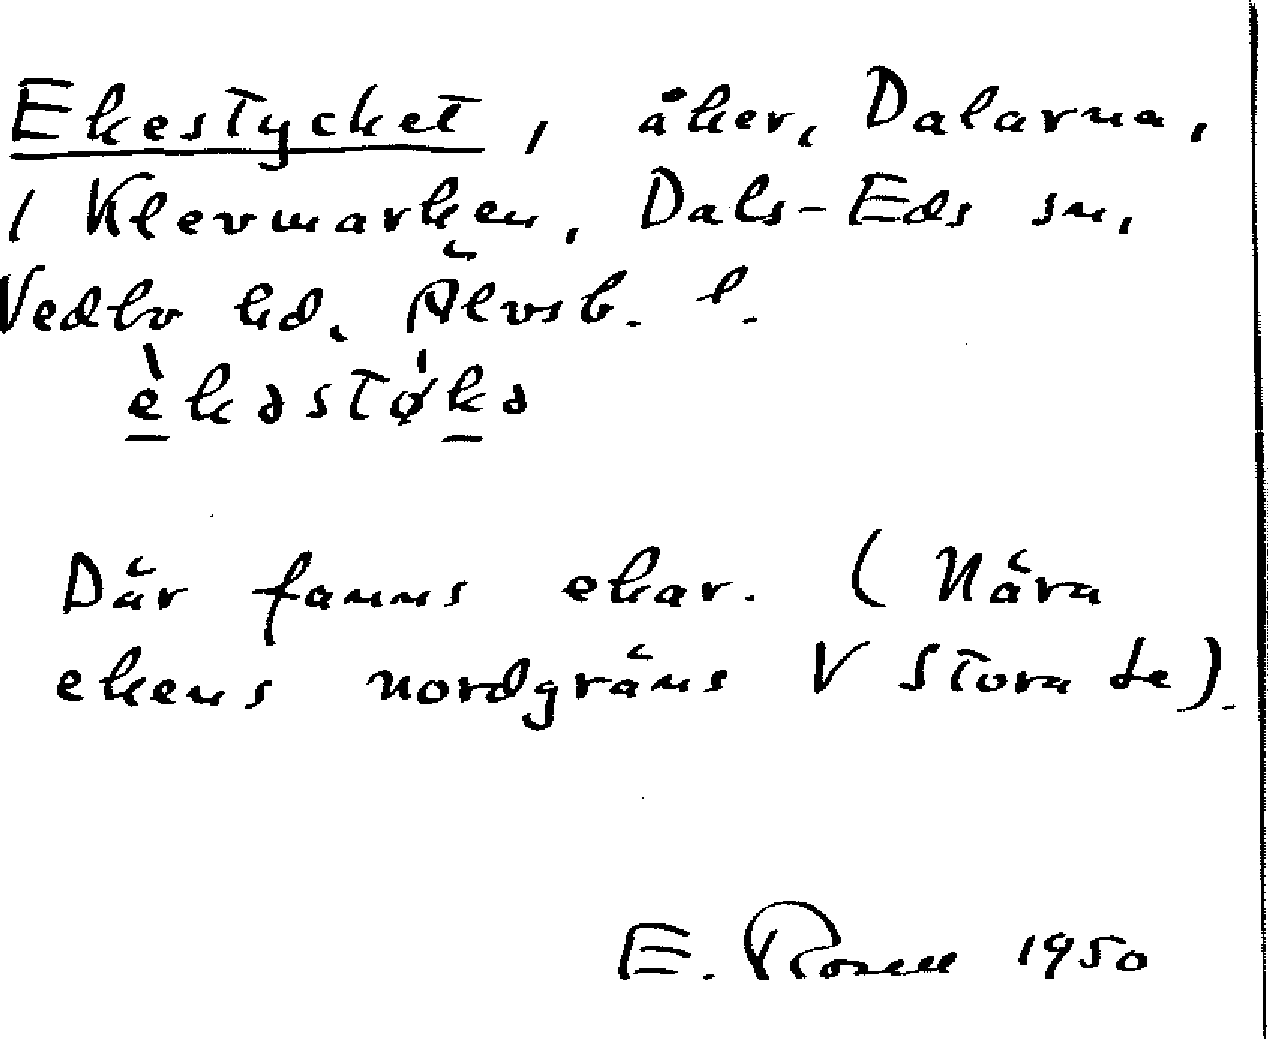 Ekestycket, åker, Dalarna,
i Klevmarken, Dals-Eds sn,
Vedbo hd, Älvsb. l.
èkəstǿkə
Där fanns ekar. (Nära
ekens nordgräns V Stora Le).
E. Rosell 1950